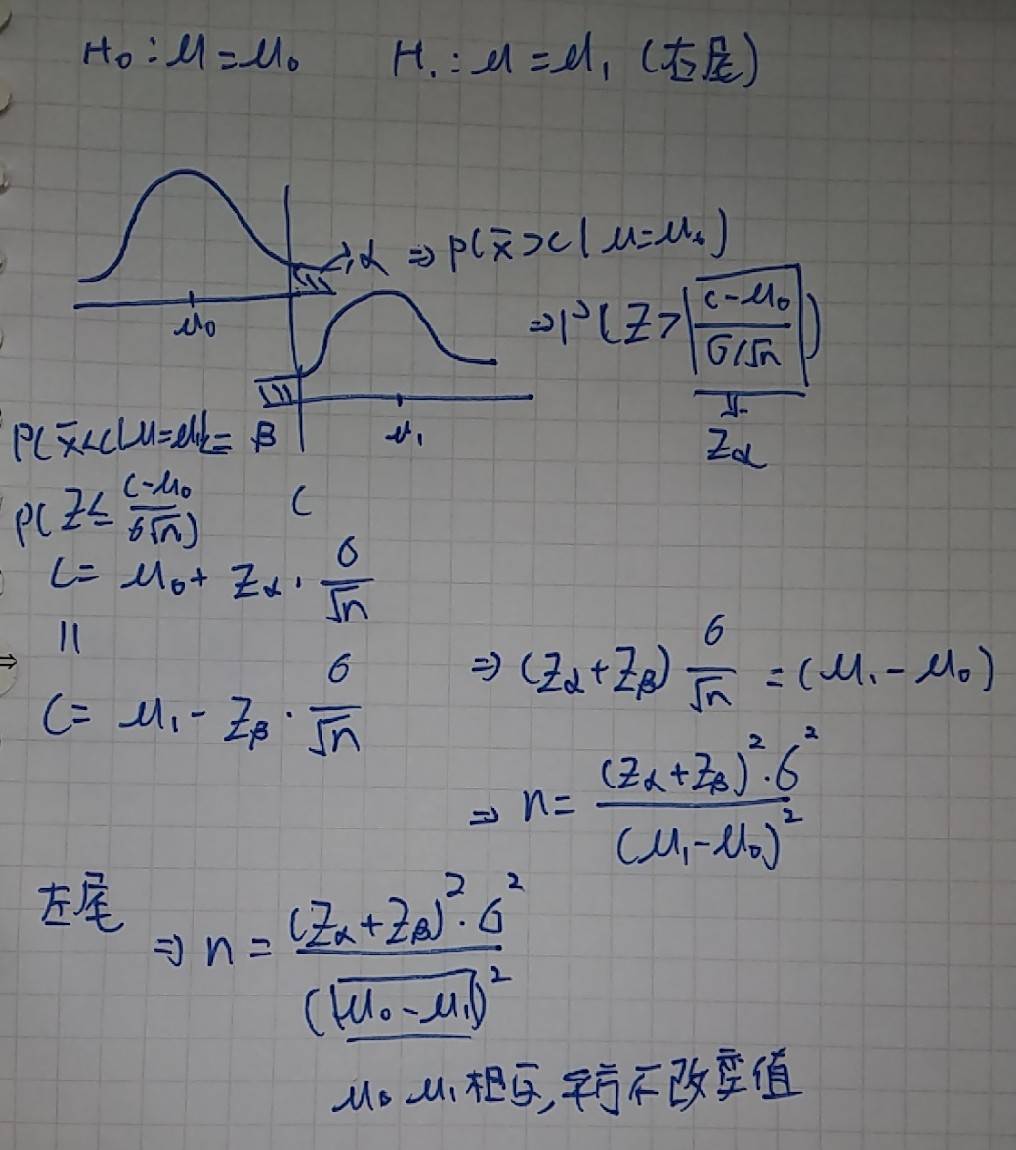 H₀:μ=μ₀ H₁:μ=μ₁ (右尾)
α ⇒ P(x̄>c|μ=μ₀)
⇒ P(Z>(c-μ₀)/(σ/√n))
μ₀
= Zα
P(x̄<c|μ=μ₁)= β
μ₁
P(Z≤(c-μ₀)/(σ√n))
C
C= μ₀+ Zα·σ/√n
=
C= μ₁- Zβ·σ/√n
⇒ (Zα+Zβ)σ/√n =(μ₁-μ₀)
⇒ n= (Zα+Zβ)²·σ²/(μ₁-μ₀)²
左尾
⇒ n= (Zα+Zβ)²·σ²/(μ₀-μ₁)²
μ₀ μ₁相反,平方不改变值